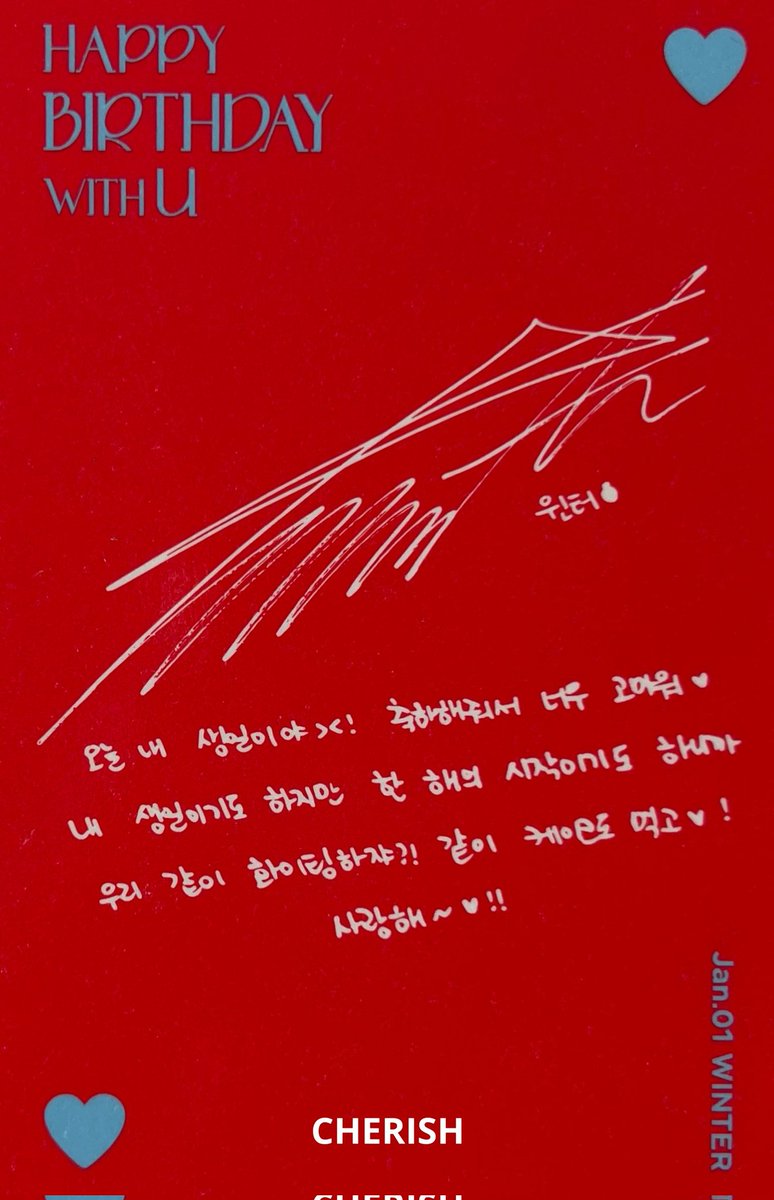 HAPPY
BIRTHDAY
WITH U
윈터
오늘 내 생일이야 ><! 축하해줘서 너무 고마워 ♥
내 생일이기도 하지만 한 해의 시작이기도 하니까
우리 같이 화이팅하쟈?! 같이 케이크도 먹고 ♥ !
사랑해 ~ ♥ !!
Jan.01 WINTER
CHERISH